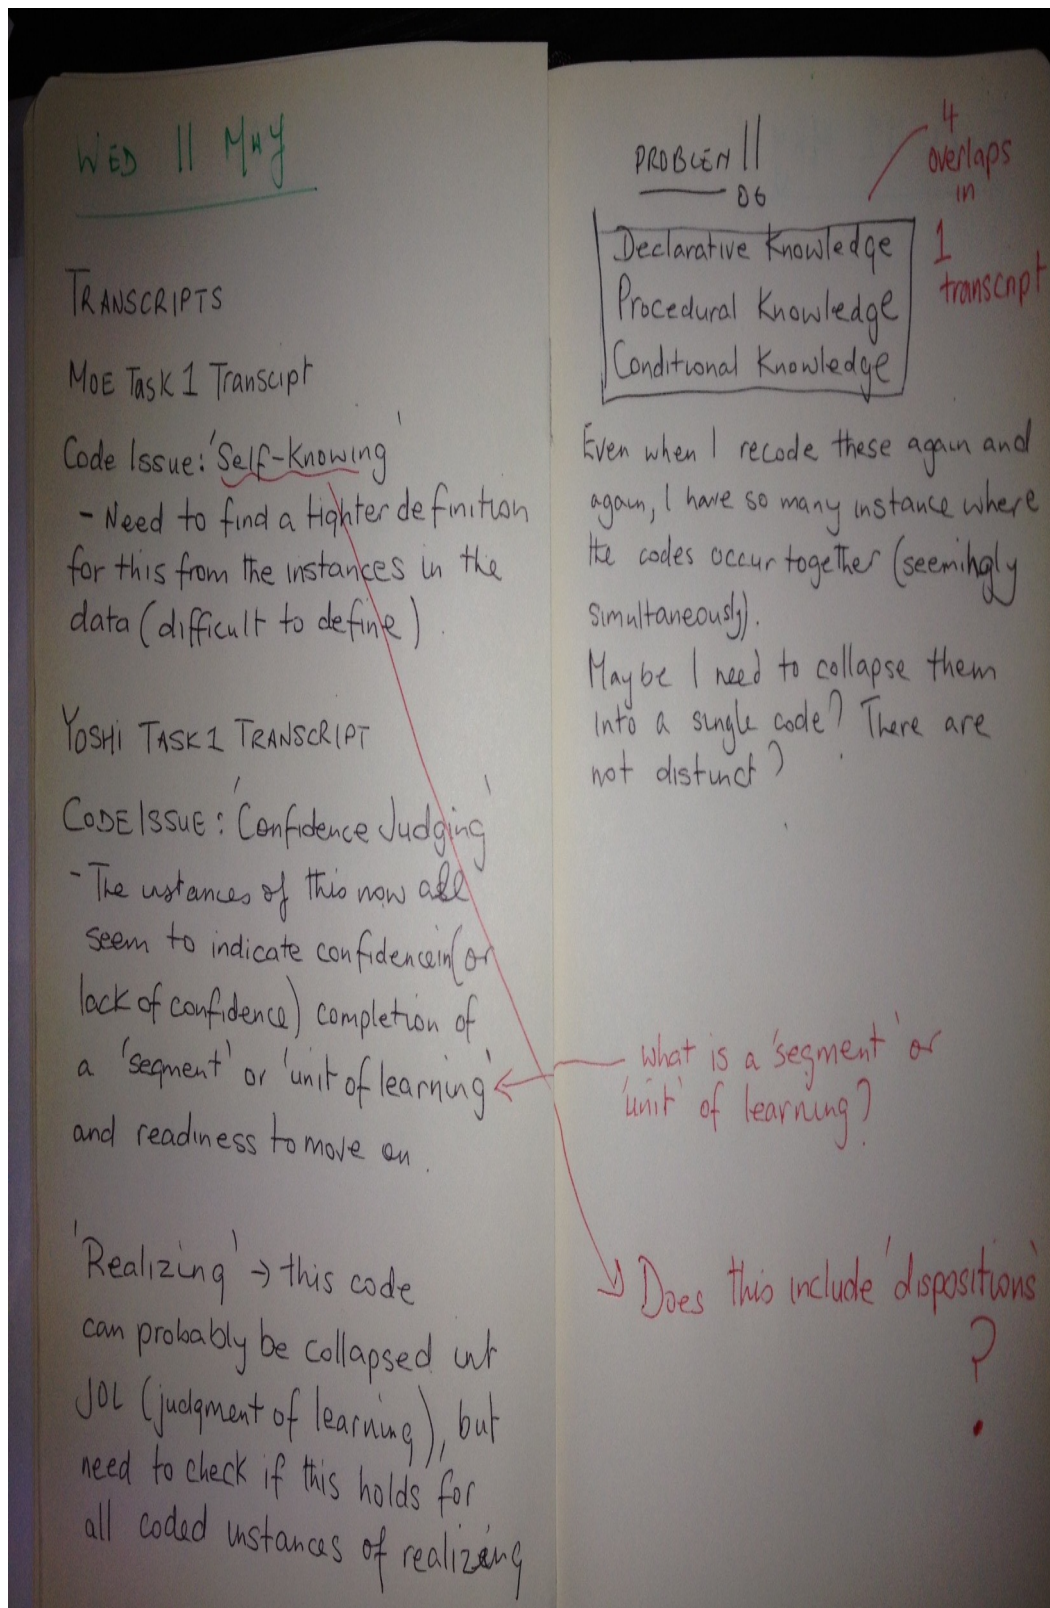 WED 11 MAY
TRANSCRIPTS
MOE TASK 1 Transcipt
Code Issue: 'Self-Knowing'
- Need to find a tighter definition
for this from the instances in the
data (difficult to define).
YOSHI TASK 1 TRANSCRIPT
CODE ISSUE: 'Confidence Judging'
- The instances of this now all
seem to indicate confidence in (or
lack of confidence) completion of
a 'segment' or 'unit of learning'
and readiness to move on.
'Realizing' → this code
can probably be collapsed int
JOL (judgment of learning), but
need to check if this holds for
all coded instances of realizing
PROBLEM 11
06
Declarative Knowledge
Procedural Knowledge
Conditional Knowledge
4
overlaps
in
1
transcript
Even when I recode these again and
again, I have so many instance where
the codes occur together (seemingly
simultaneously).
Maybe I need to collapse them
into a single code? There are
not distinct?
what is a 'segment' or
'unit' of learning?
Does this include 'dispositions'
?